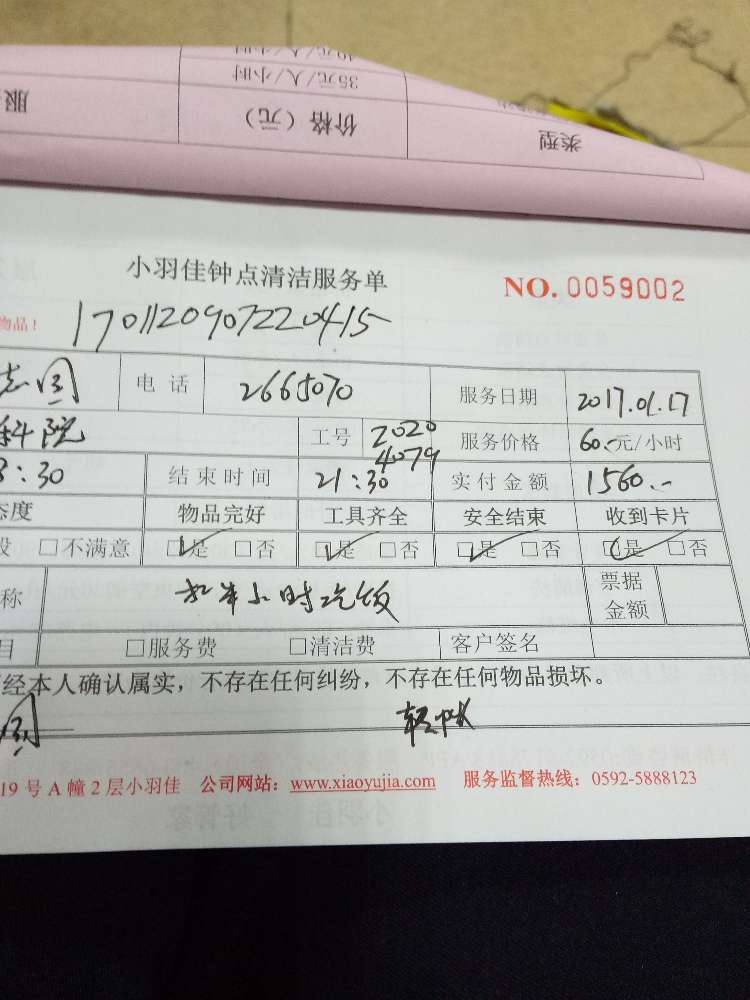 40元/人/小时
35元/人/小时
服
价格（元）
类型
小羽佳钟点清洁服务单
NO. 0059002
物品！
170112090722041​5
电话
2665070
服务日期
2017.01.17
科院
工号
2020
4079
服务价格
60.-元/小时
8:30
结束时间
21:30
实付金额
1560.-
态度
物品完好
工具齐全
安全结束
收到卡片
□不满意
□是 □否
□是 □否
□是 □否
□是 □否
称
加半小时吃饭
票据
金额
目
□服务费
□清洁费
客户签名
经本人确认属实，不存在任何纠纷，不存在任何物品损坏。
19号A幢2层小羽佳 公司网站：www.xiaoyujia.com 服务监督热线：0592-5888123